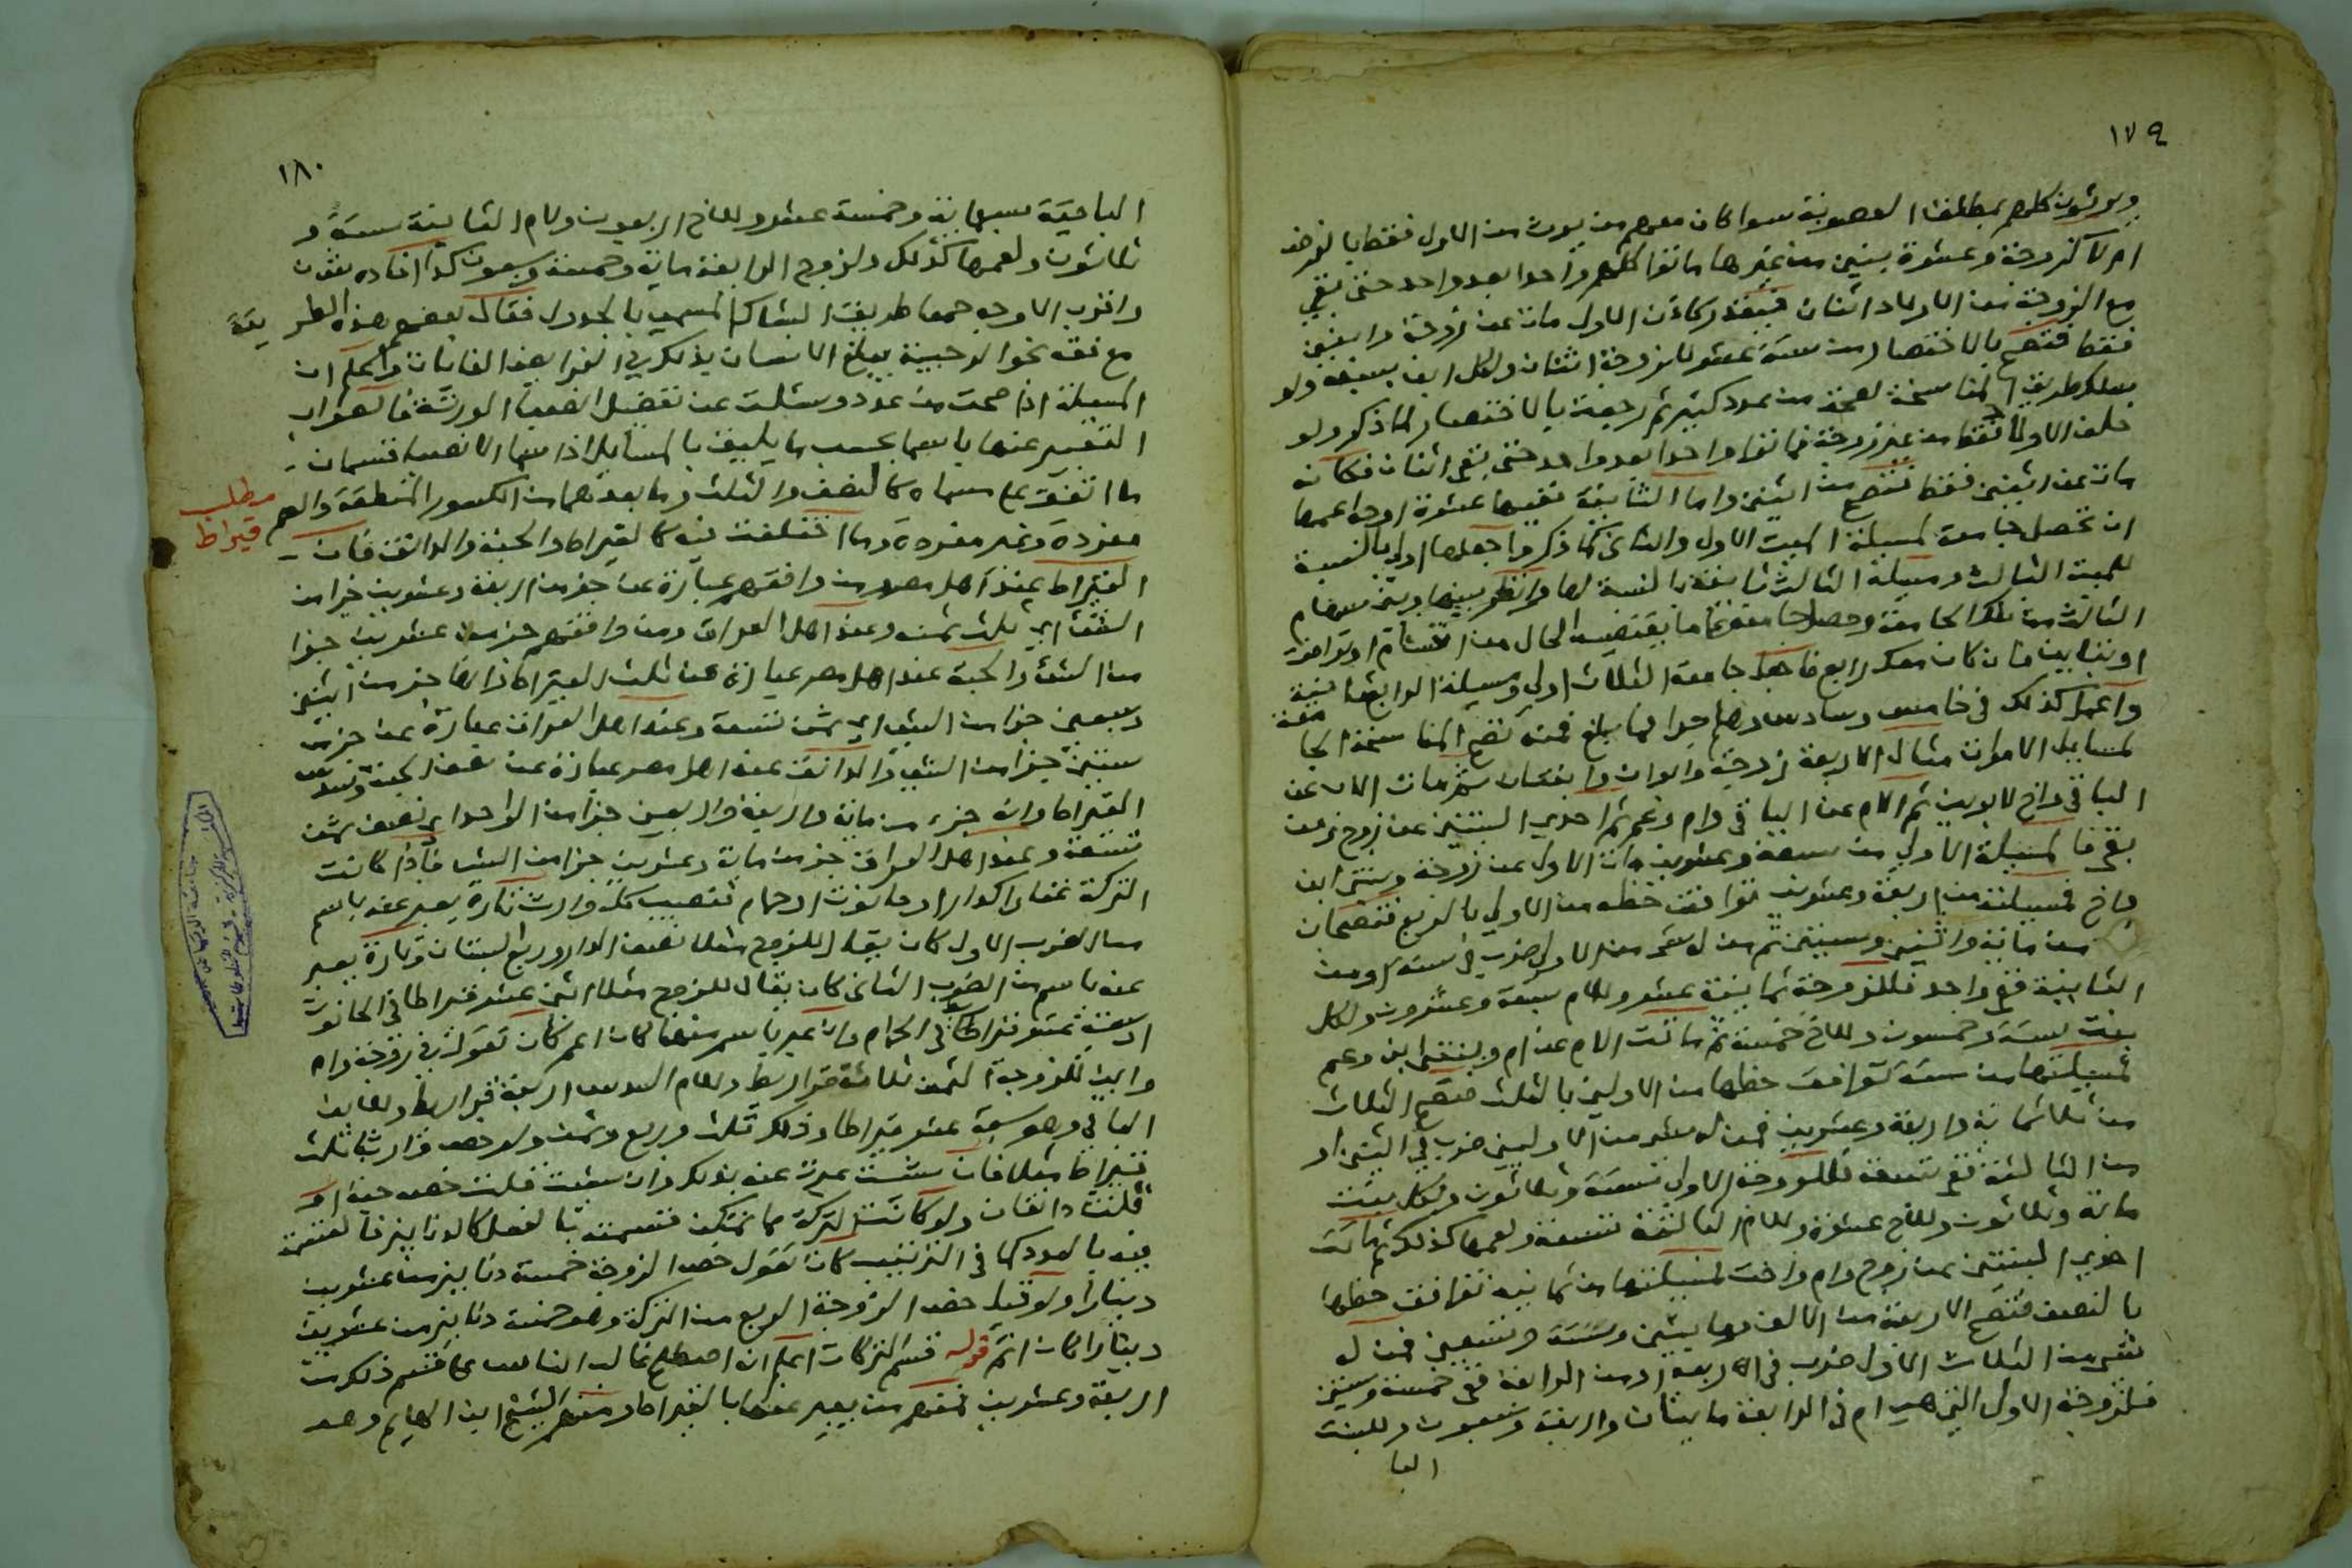 ١٧٩
ويرثون كلهم بمطلق العصوبة سوا كان معهم من يرث من الاول فقط بالفرض
ام لا كزوجة وعشرة بنين من غيرها ماتوا كلهم واحدا بعد واحد حتى بقي
مع الزوجة من الاولاد اثنان فيقدر كان الاول مات عن زوجة وابنين
فقط فتصح بالاختصار من ستة عشر للزوجة اثنان ولكل ابن سبعة ولو
سلك طريق المناسخة لصحة من عدد كثير ثم رجعت بالاختصار لما ذكر ولو
خلف الاولاد فقط من غير زوجة فماتوا واحدا بعد واحد حتى بقي اثنان فكانه
مات عن اثنين فقط فتصح من اثنين واما الثانية ففيها عشرة اوجه اعمها
ان تحصل جامعة لمسيلة الميت الاول والثاني كما ذكر واجعلها اولي بالنسبة
للميت الثالث ومسيلة الثالث ثانية بالنسبة لها وانظر بينها وبين سهام
الثالث من تلك الجامعة وحصل جامعة ما يقتضيه الحال من انقسام او توافق
او تباين فان كان معك رابع فاجعل جامعة الثلاث اولي ومسيلة الرابع ثانية
واعمل كذلك في خامس وسادس وهلم جرا فما بلغ فمنه تصح المناسخة الجا معة
لمسايل الاموات مثال الاربعة زوجة وابوان وابنتان ثم مات الاب عن
الباقي واخ لابوين ثم الام عن الباقي وام وعم ثم احدي البنتين عن زوج ومن
بقي فالمسيلة الاولي من سبعة وعشرين مات الاول عن زوجة وبنتي ابن
واخ فمسيلته من اربعة وعشرين توافق حظه من الاولي بالربع فتصحان
من ماية واثنين وستين ثم من له شي من الاولي ضرب في ستة او من
الثانية ففي واحد فللزوجة ثمانية عشر وللام سبعة وعشرون ولكل
بنت ستة وخمسون وللاخ خمسة ثم ماتت الام عن ام وبنتي ابن وعم
فمسيلتها من ستة توافق حظها من الاوليين بالثلث فتصح الثلاث
من ثلاثماية واربعة وعشرين فمن له شي من الاوليين ضرب في اثنين او
من الثالثة ففي تسعة فللزوجة الاولي ستة وثلاثون ولكل بنت
ماية وثلاثون وللاخ عشرة وللام الثالثة تسعة ولعمها كذلك ثم ماتت
احدي البنتين عن زوج وام واخت لمسيلتها من ثمانية توافق حظها
بالنصف فتصح الاربعة من الف ومايتين وستة وتسعين فمن له
شي من الثلاث الاول ضرب في الاربعة او من الرابعة ففي خمسة وستين
فلزوجة الاول التي هي ام في الرابعة مايتان واربعة وسبعون وللبنت
البا
١٨٠
الباقية سبعماية وخمسة عشر وللاخ اربعون ولام الثانية ستة و
ثلاثون ولعمها كذلك ولزوج الرابعة ماية وخمسة وتسعون كذا افاده
واقرب الاوجه جمعا طريق الشباك المسمي بالجدول فقال بعضهم بهذه الطر يقة
مع نقله نحو الرحبية يبلغ الانسان بذلك في الفرايض الغايات واعلم ان
المسيلة اذا صحت من عدد وسئلت عن تفصيل انصباء الورثة فالصواب
التعبير عنها باسما بحسب ما يليق بالمسايل اذ اسما الانصبا قسمان
ما اتفق علي مسماه كالنصف والثلث وما بعدهما من الكسور المنطقة والصم
مطلب
قيراط
مفردة وغير مفردة وما اختلف فيه كالقيراط والحبة والدانق فان
القيراط عند اهل مصر ومن وافقهم عبارة عن جز من اربعة وعشرين جزا من
الشي اي ثلث ثمنه وعند اهل العراق ومن وافقهم جز من عشرين جزا
من الشي والحبة عند اهل مصر عبارة عن ثلث القيراط وانها جز من اثنين
وسبعين جزا من الشي اي ثمن تسعه وعند اهل العراق عبارة عن جز من
ستين جزا من الشي والدانق عند اهل مصر عبارة عن نصف الحبة وسدس
القيراط وانه جزء من ماية واربعة واربعين جزا من الواحد اي نصف ثمن
تسعه وعند اهل العراق جز من ماية وعشرين جزا من الشي فاذا كانت
التركة عقارا كدار او حانوت او حمام فنصيب كل وارث تارة يعبر عنه باسم
من الضرب الاول كان يقال للزوج مثلا نصف الدار وربع البستان وتارة يعبر
عنه باسم من الضرب الثاني كان يقال للزوج مثلا اثني عشر قيراطا في الحانوت
اربعة عشر قيراطا في الحمام وان عبر باسم منها كان اعم كان تقول في زوجة وام
وابن للزوجة الثمن ثلاثة قراريط وللام السدس اربعة قراريط وللابن
الباقي وهو سبعة عشر قيراطا وذلك ثلث وربع وثمن ولو حصه وارث ثلث
قيراط مثلا فان شئت عبرت عنه بذلك وان شئت قلت خصه حبة او
قلت دانقان ولو كانت التركة مما تمكن قسمته بالفعل كالدنانير فالقسمة
فيه بالعدد كما في الترتيب كان تقول خص الزوجة خمسة دنانير من عشرين
دينارا ولو قيل خص الزوجة الربع من التركة وهو خمسة دنانير من عشرين
دينارا كان اتم قوله قسم التركات اعلم انه اصطلح غالب الناس علي قسم ذلك من
اربعة وعشرين فمنهم من يعبر عنها بالقيراط ومنهم الشيخ ابن الهايم وهو